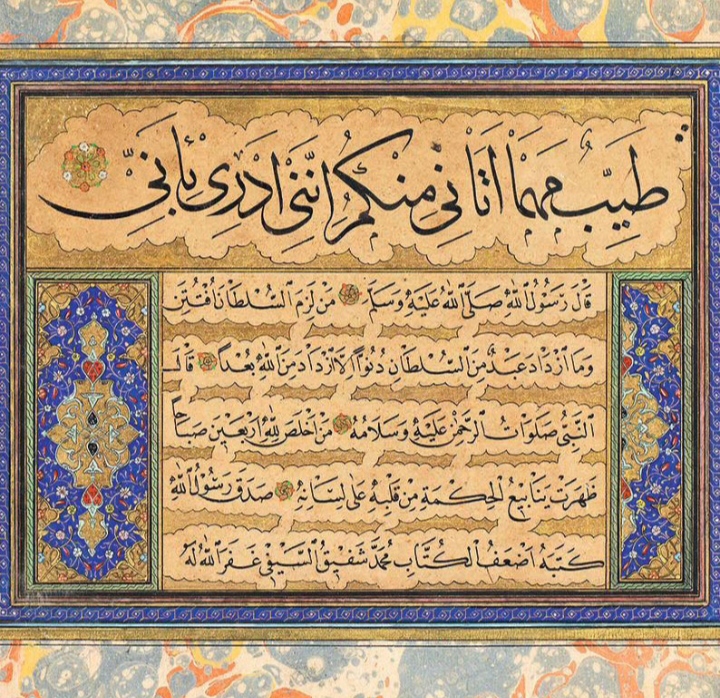 طَيِّبٌ مَهْمَا اَتَانِي مِنْكُمُ اِنَّنِي اَدْرِى بِاَنِّي
قَالَ رَسُولُ اللّٰهِ صَلَّى اللّٰهُ عَلَيْهِ وَسَلَّمَ مَنْ لَزِمَ السُّلْطَانَ اُفْتُتِنَ
وَمَا ازْدَادَ عَبْدٌ مِنَ السُّلْطَانِ دُنُوًّا اِلَّا ازْدَادَ مِنَ اللّٰهِ بُعْدًا قَالَ
النَّبِيُّ صَلَوَاتُ الرَّحْمٰنِ عَلَيْهِ وَسَلَامُهُ مَنْ اَخْلَصَ لِلّٰهِ اَرْبَعِينَ صَبَاحًا
ظَهَرَتْ يَنَابِيعُ الْحِكْمَةِ مِنْ قَلْبِهِ عَلَى لِسَانِهِ صَدَقَ رَسُولُ اللّٰهِ
كَتَبَهُ اَضْعَفُ الْكُتَّابِ مُحَمَّد شَفِيقُ السَّيْفِي غَفَرَ اللّٰهُ لَهُ